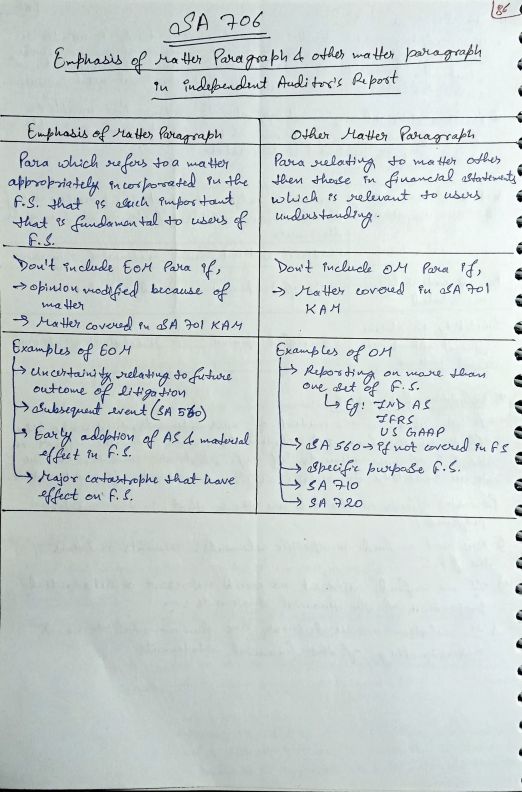 86
SA 706
Emphasis of Matter Paragraph & other matter paragraph
in independent Auditor's Report
Emphasis of Matter Paragraph
Para which refers to a matter
appropriately incorporated in the
F.S. that is such important
that is fundamental to users of
F.S.
Other Matter Paragraph
Para relating to matter other
then those in financial statements
which is relevant to users
understanding.
Don't include EOM Para if,
→ opinion modified because of
matter
→ Matter covered in SA 701 KAM
Don't include OM Para if,
→ Matter covered in SA 701
KAM
Examples of EOM
→ Uncertainity relating to future
outcome of litigation
→ Subsequent event (SA 560)
→ Early adoption of AS & material
effect in F.S.
→ Major catastrophe that have
effect on F.S.
Examples of OM
→ Reporting on more than
one set of F.S.
↳ Eg: IND AS
IFRS
US GAAP
→ SA 560 → if not covered in FS
→ Specific purpose F.S.
→ SA 710
→ SA 720